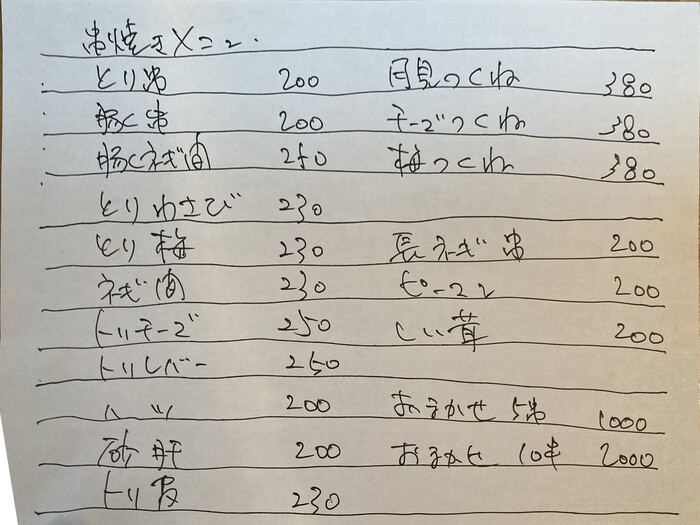 串焼きメニュー
とり串 200 月見つくね 380
豚く串 200 チーズつくね 380
豚くネギ間 250 梅つくね 380
とりわさび 230
とり梅 230 長ネギ串 200
ネギ間 230 ピーマン 200
トリチーズ 250 しい茸 200
トリレバー 250
ハツ 200 おまかせ 5串 1000
砂肝 200 おまかせ 10串 2000
トリ皮 230